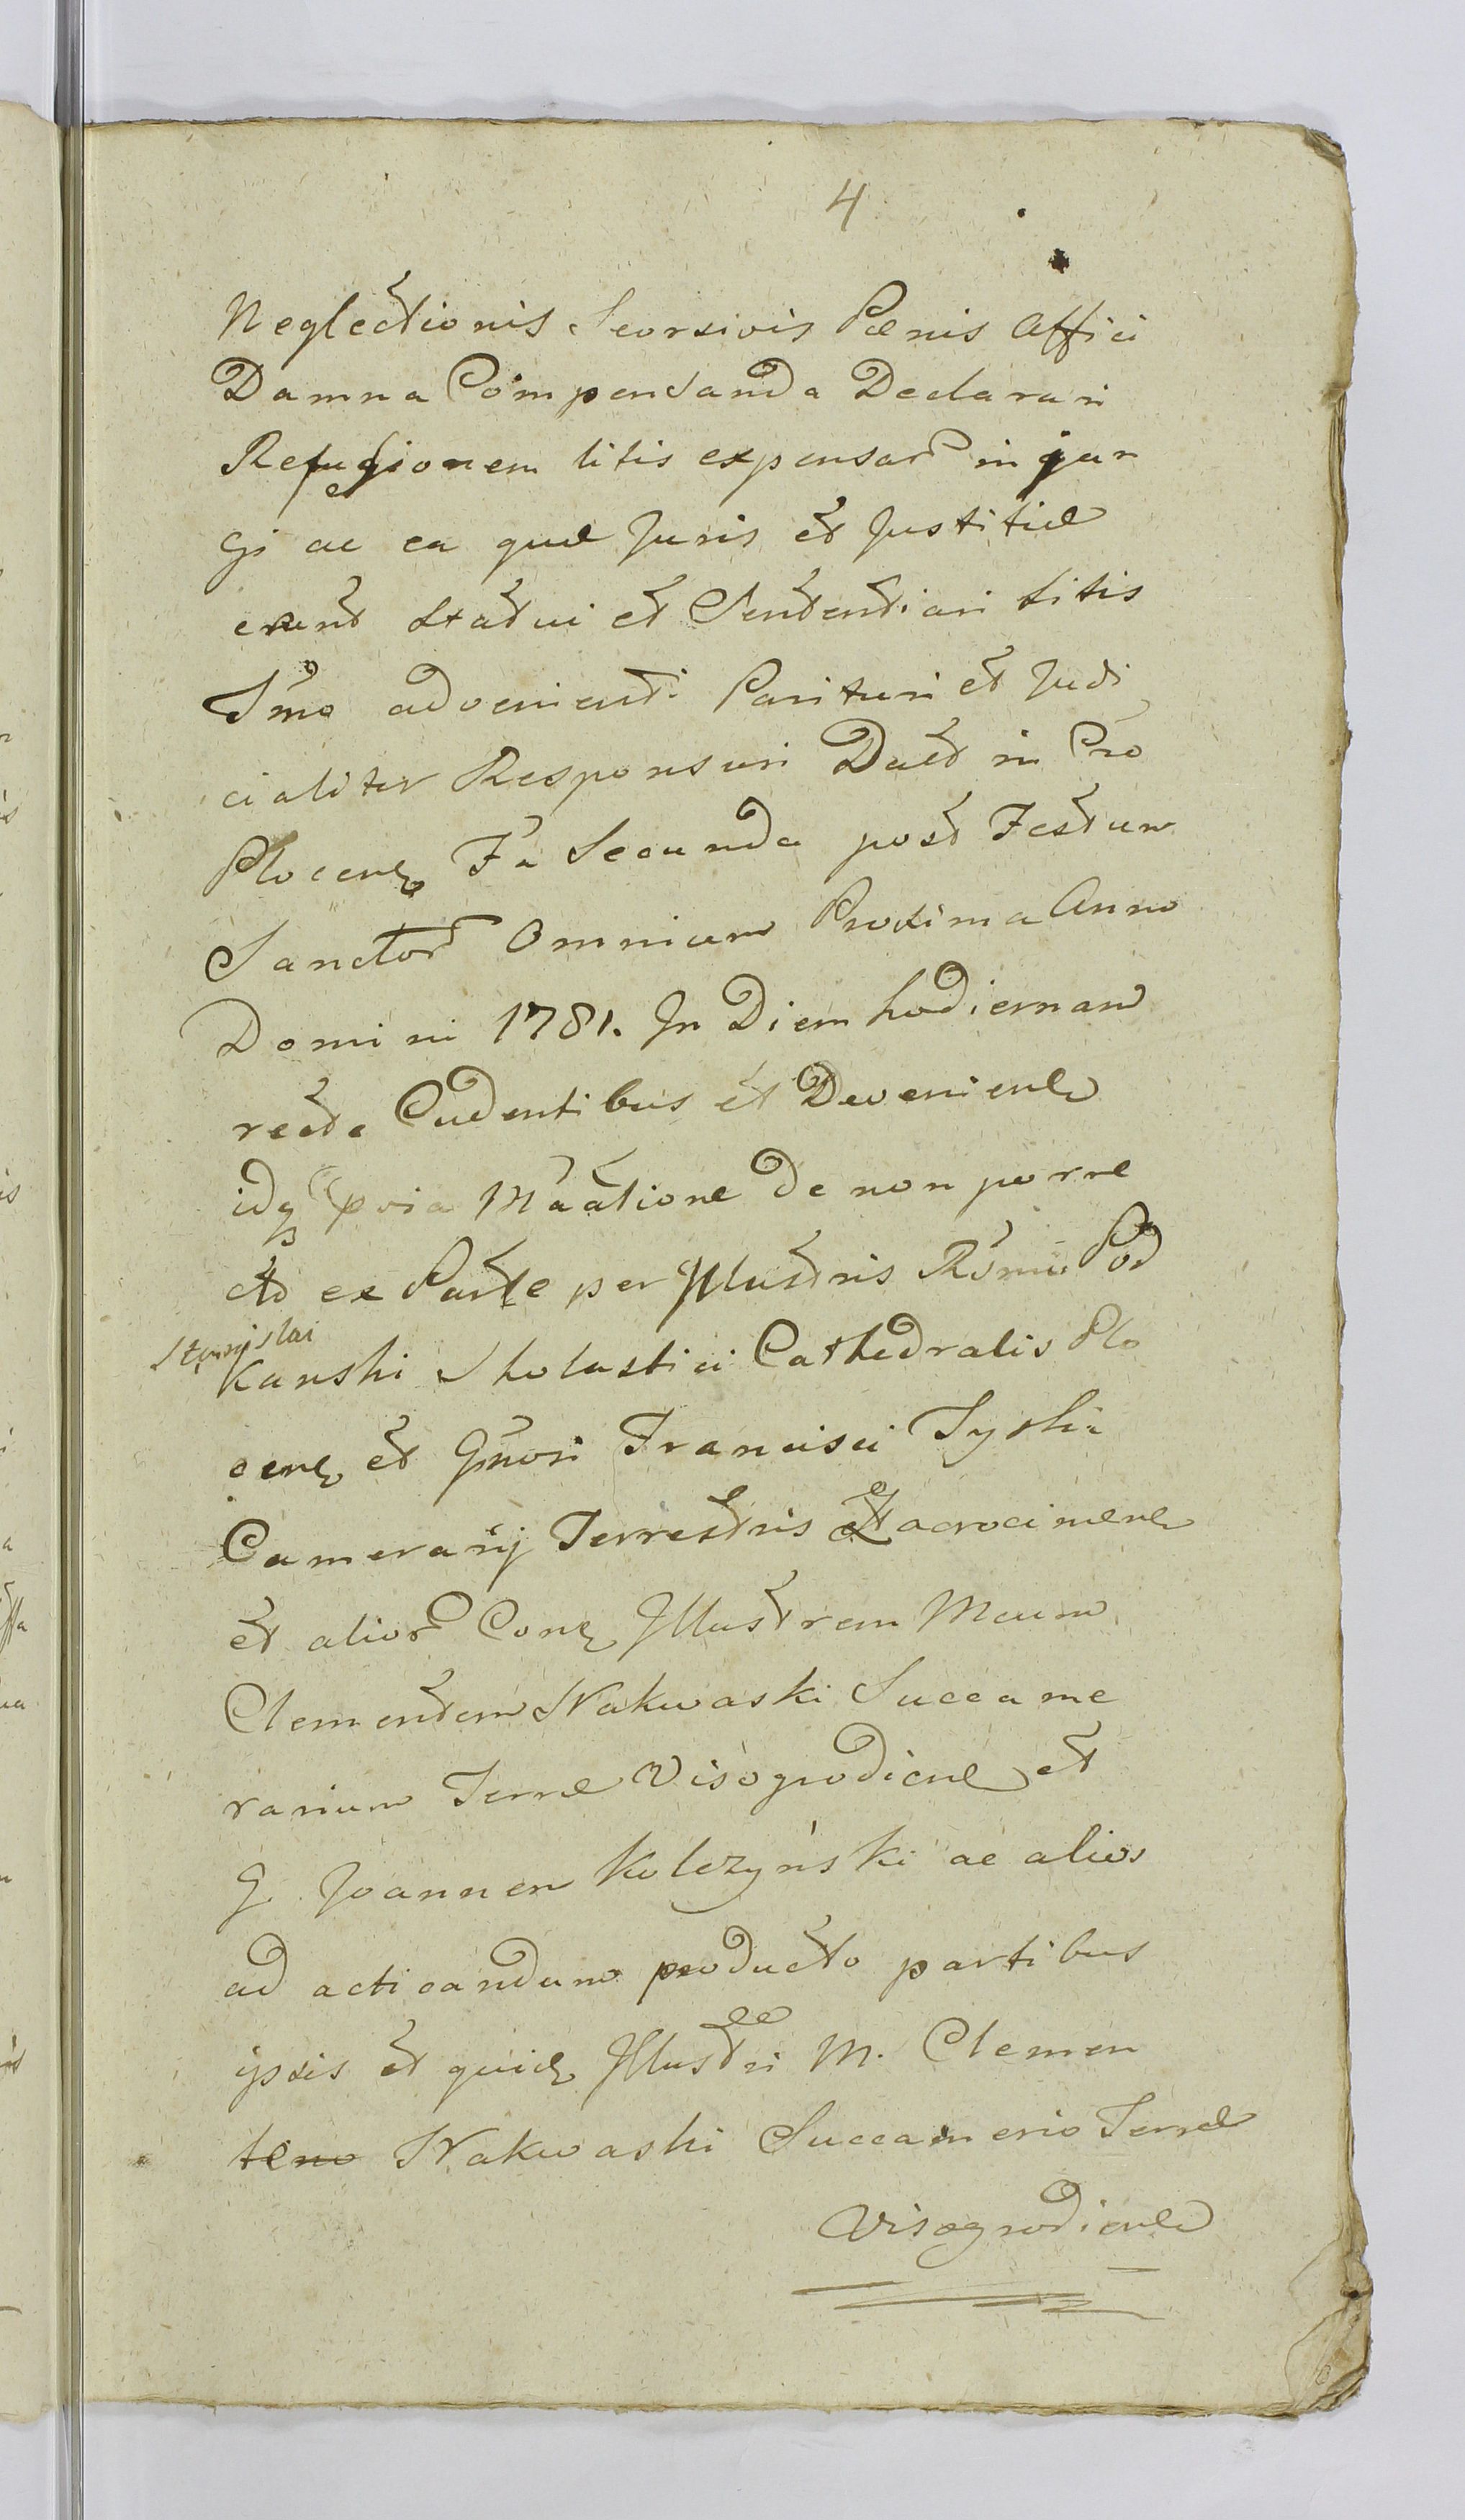 4
Neglectionis Seorsivis Pœnis Affici
Damna Compensanda Declarari
Refusionem litis expensar in jun
gi ac ea quæ Juris et Justitiæ
erunt Statui et Sententiari Litis
Smo advenienti Parituri et Judi
cialiter Responsuri Datt in Pro
Plocen Fa Secunda post Festum
Sanctor Omnium Proxima Anno
Domini 1781. In Diem hodiernam
recte Cadentibus et Devenien
idq pvia Maatione de non parre
cto ex Parte per Illustris Rdmi Pod
Stanislai
Kanski Sholastici Cathedralis Plo
cen et Gnosi Francisci Tyski
Camerarij Terrestris Zacrocimen
et alior Con Illustrem Mcum
Clementem Nakwaski Succame
rarium Terræ Visogrodien et
G Joannem Kolczynski ac alios
ad acticandum producto partibus
ipsis et quid Illustri M. Clemen
tem Nakwaski Succamerio Terræ
Visogrodien